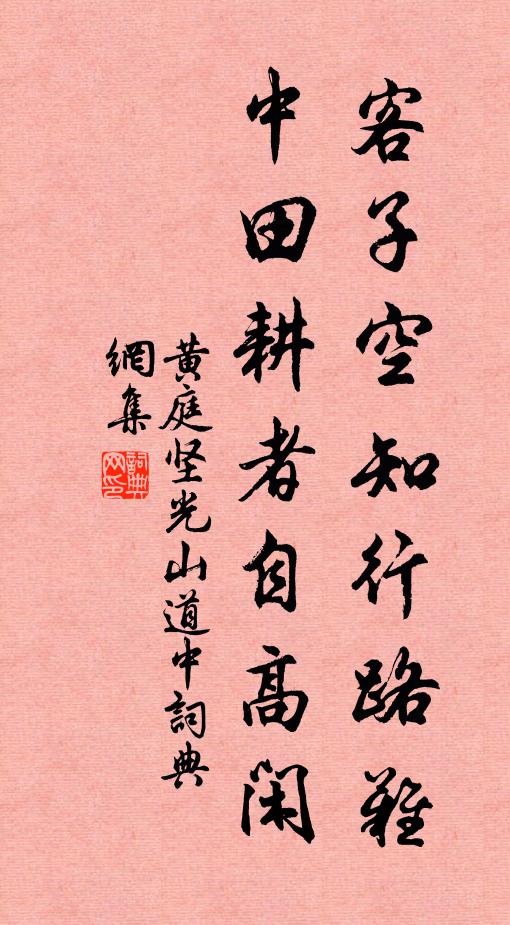 客子空知行路难
中田耕者自高闲
黄庭坚光山道中詞典
網集
詞典
网印